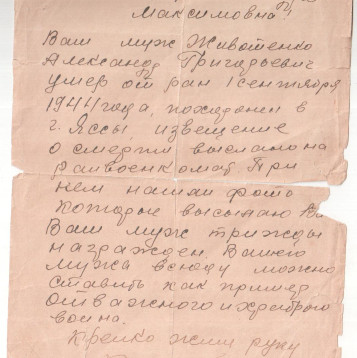 Максимовна!
Ваш муж Животенко
Александр Григорьевич
умер от ран 1 сентября
1944 года, похоронен в
г. Яссы, извещение
о смерти выслано на
райвоенкомат. При
нем нашли фото
которые высылаю Ва
Ваш муж трижды
награжден. Вашего
мужа всюду можно
ставить как пример
отважного и храброго
воина.
Крепко жму руку